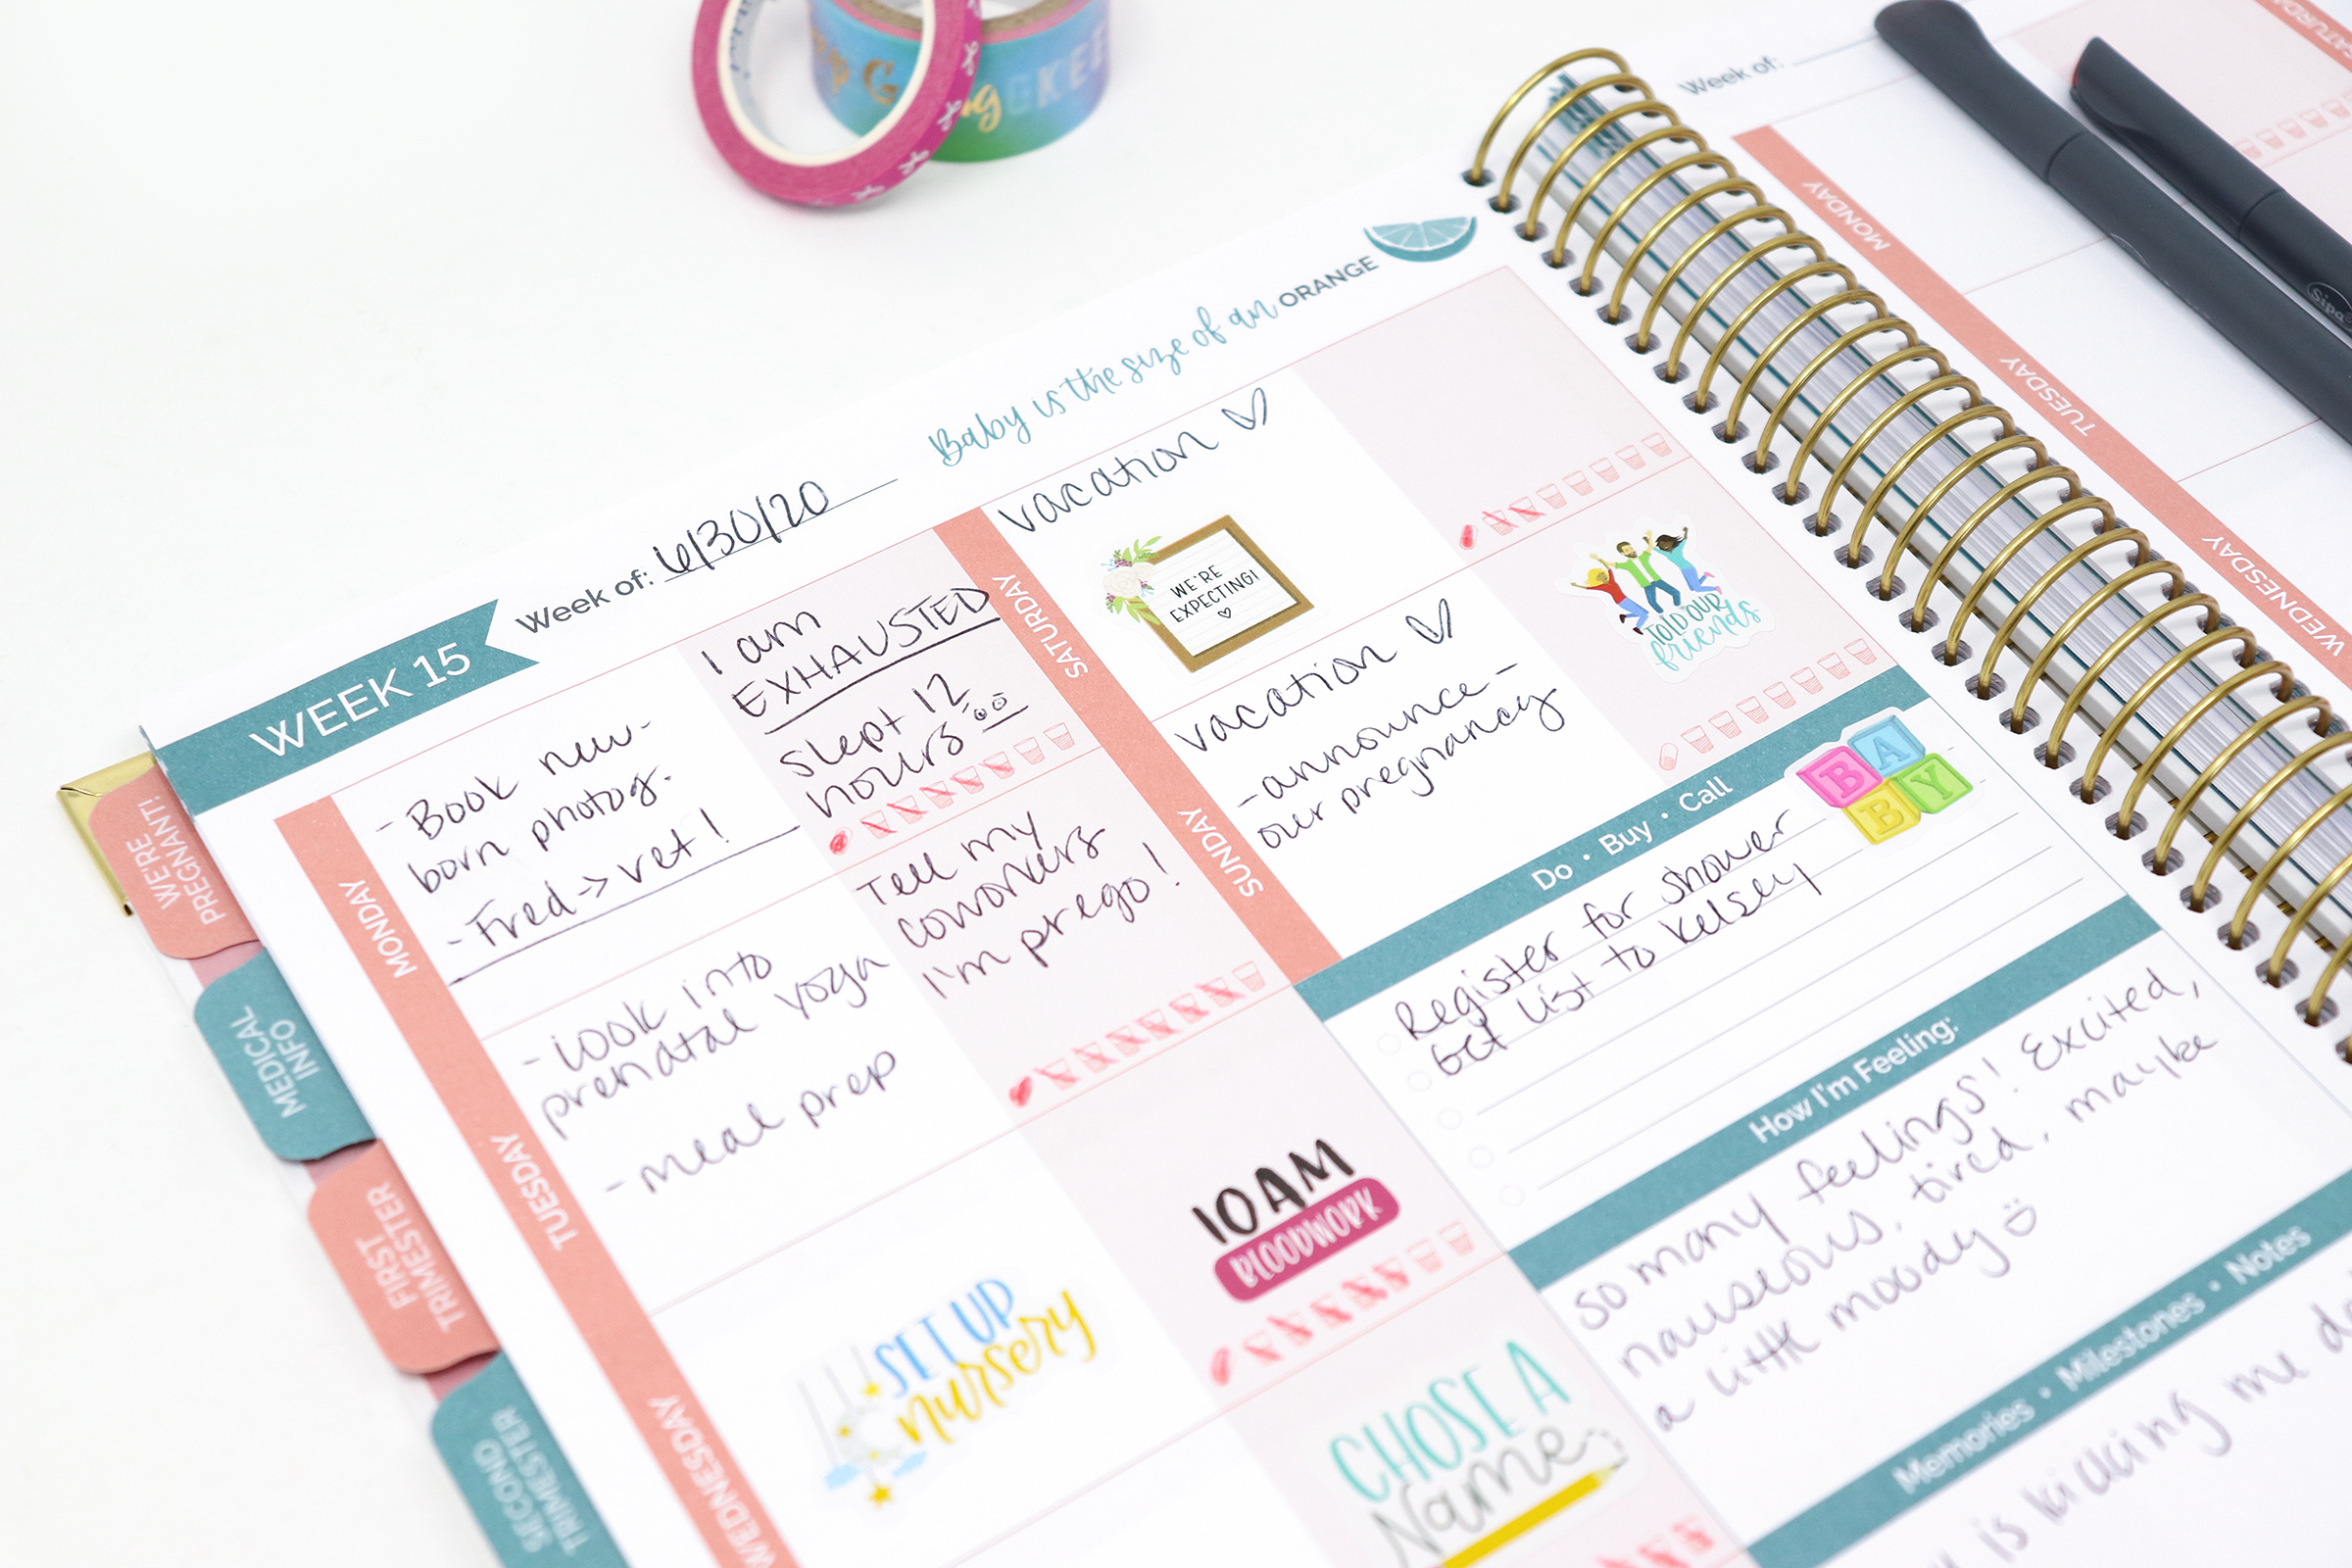 WEEK 15
Week of: 6/30/20
Baby is the size of an ORANGE
WE'RE
PREGNANT!
MEDICAL
INFO
FIRST
TRIMESTER
SECOND
TRIMESTER
MONDAY
- Book new-
born photog.
- Fred -> vet!
I am
EXHAUSTED
slept 12
hours
TUESDAY
- look into
prenatal yoga
- meal prep
Tell my
coworkers
I'm prego!
WEDNESDAY
SET UP
nursery
10AM
BLOODWORK
CHOSE A
Name
SATURDAY
vacation ♡
WE'RE
EXPECTING!
♡
SUNDAY
vacation ♡
- announce -
our pregnancy
TOLD OUR
friends
Do • Buy • Call
BA
BY
Register for shower
Get list to Kelsey
How I'm Feeling:
So many feelings! Excited,
nauseous, tired, maybe
a little moody
Memories • Milestones • Notes
is kicking me
Week of:
MONDAY
TUESDAY
WEDNESDAY